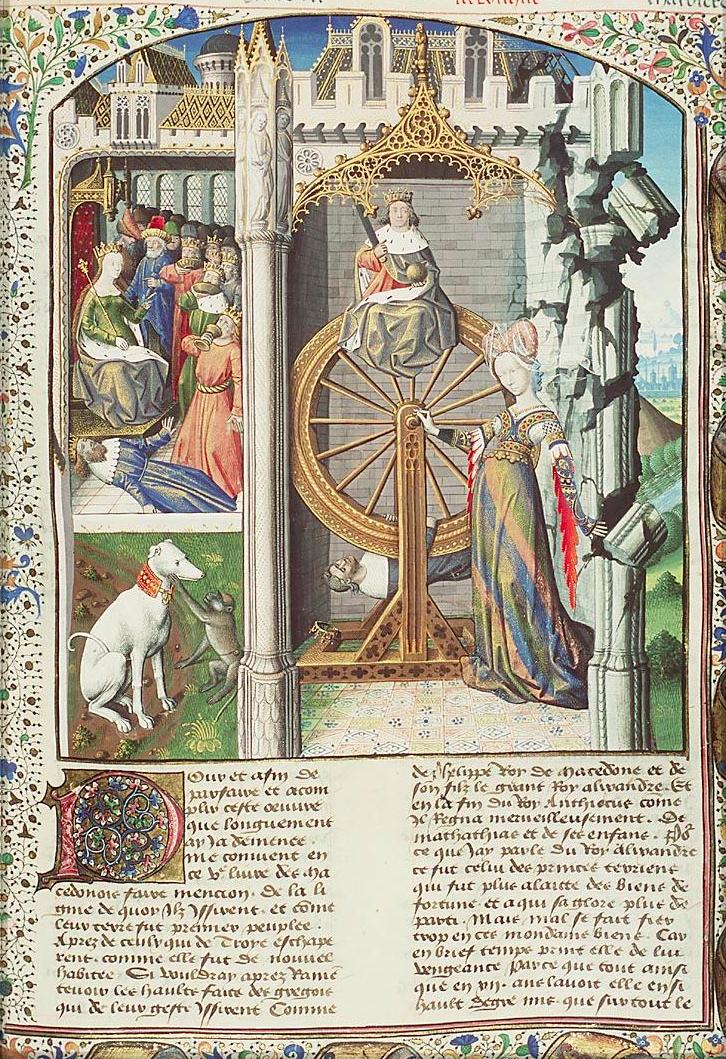 Our et afin de
parfaire et acom
plir ceste oeuvre
que longuement
ay Ja demenee.
me convient en
ce vje livre des ma
cedonois faire mencion. De la li
gnie de quoy Ilz Issirent. et come
leur terre fut premier peuplee.
Aprez de ceulz qui de Troye eschape
rent. comme elle fut de nouvel
habitee. Si vouldray aprez ramē
tevoir les haulz faiz des gregois
qui de leur geste Issirent Comme
de phelippe Roy de macedone et de
son filz le grant Roy alixandre. Et
en la fin du Roy Anthiocus come
Il Regna merveilleusement. De
mathathias et de ses enfans. Po2
ce que Jay parle du Roy Alixandre
ce fut celui des princes terriens
qui fut plus alaitte des biens de
fortune. et a qui sa glore plus de
parti. Mais mal se fait fier
trop en ces mondains biens. Car
en brief temps print elle de lui
vengance Parce que tout ainsi
que en vii. ans lavoit elle en si
hault degre mis. que sur tout le